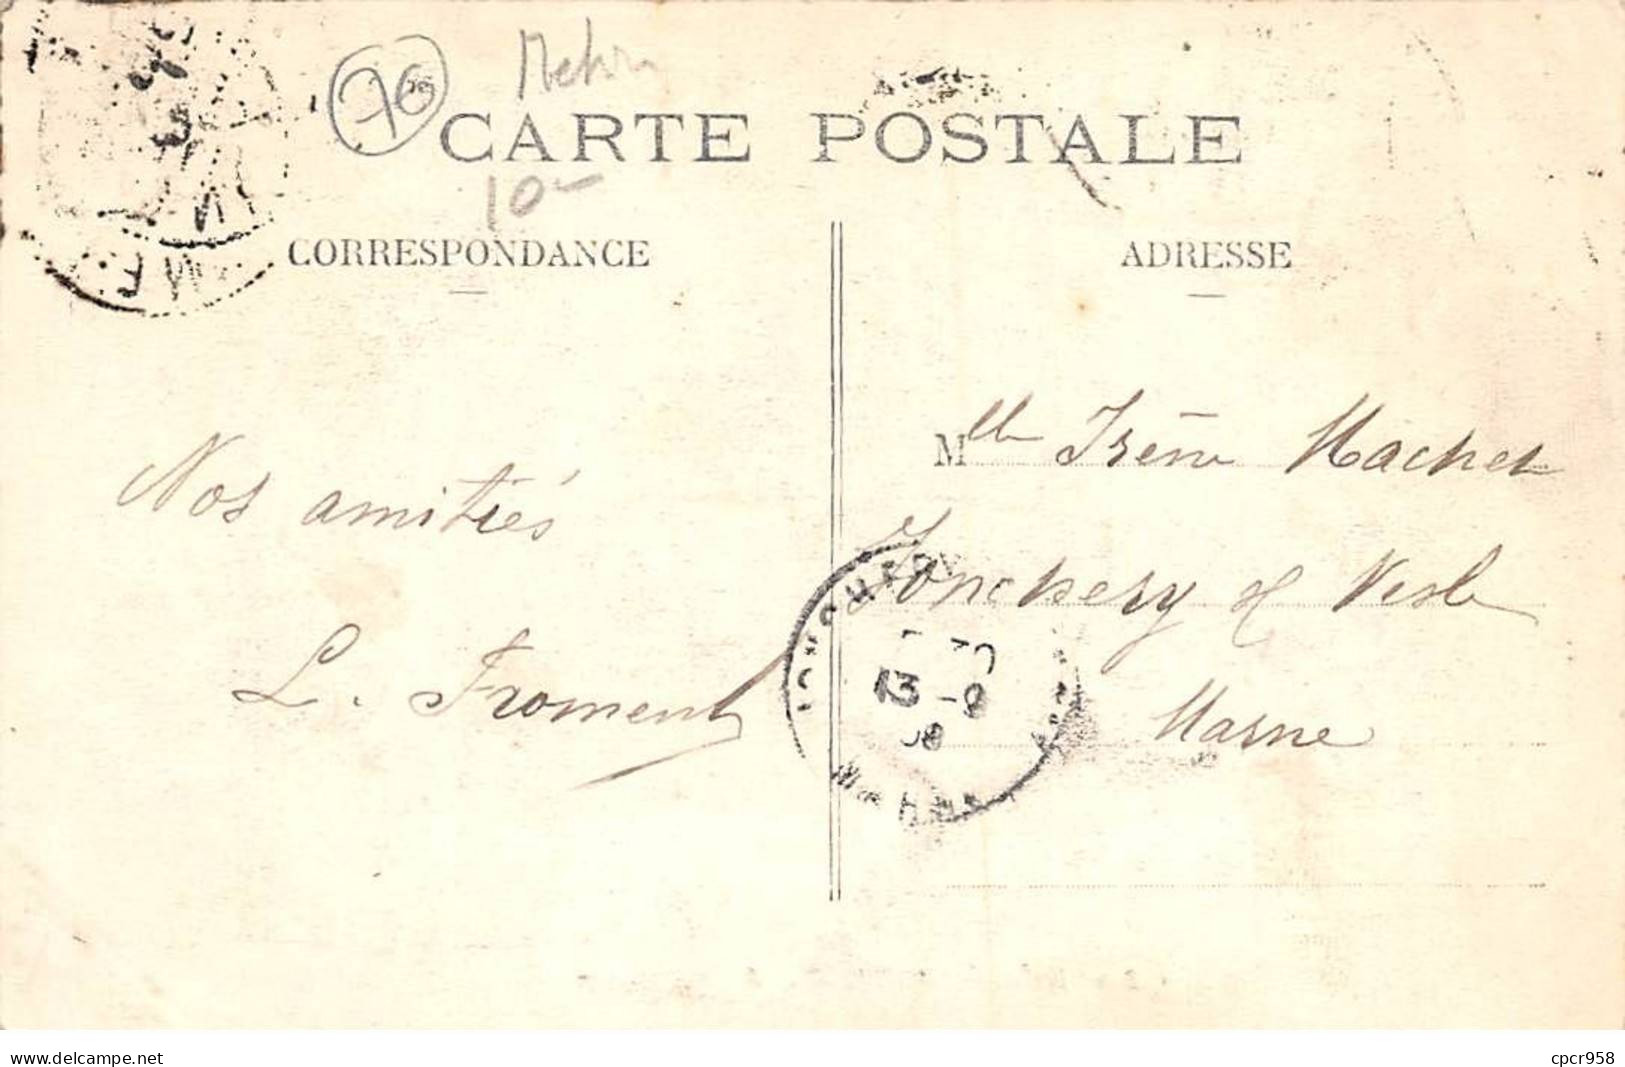 76
CARTE POSTALE
10-
CORRESPONDANCE
ADRESSE
Mlle Irène Machet
Nos amitiés
Jonchery s/ Vesle
L. Froment
Marne
JONCHERY
13 -9
08
MARNE
www.delcampe.net
cpcr958